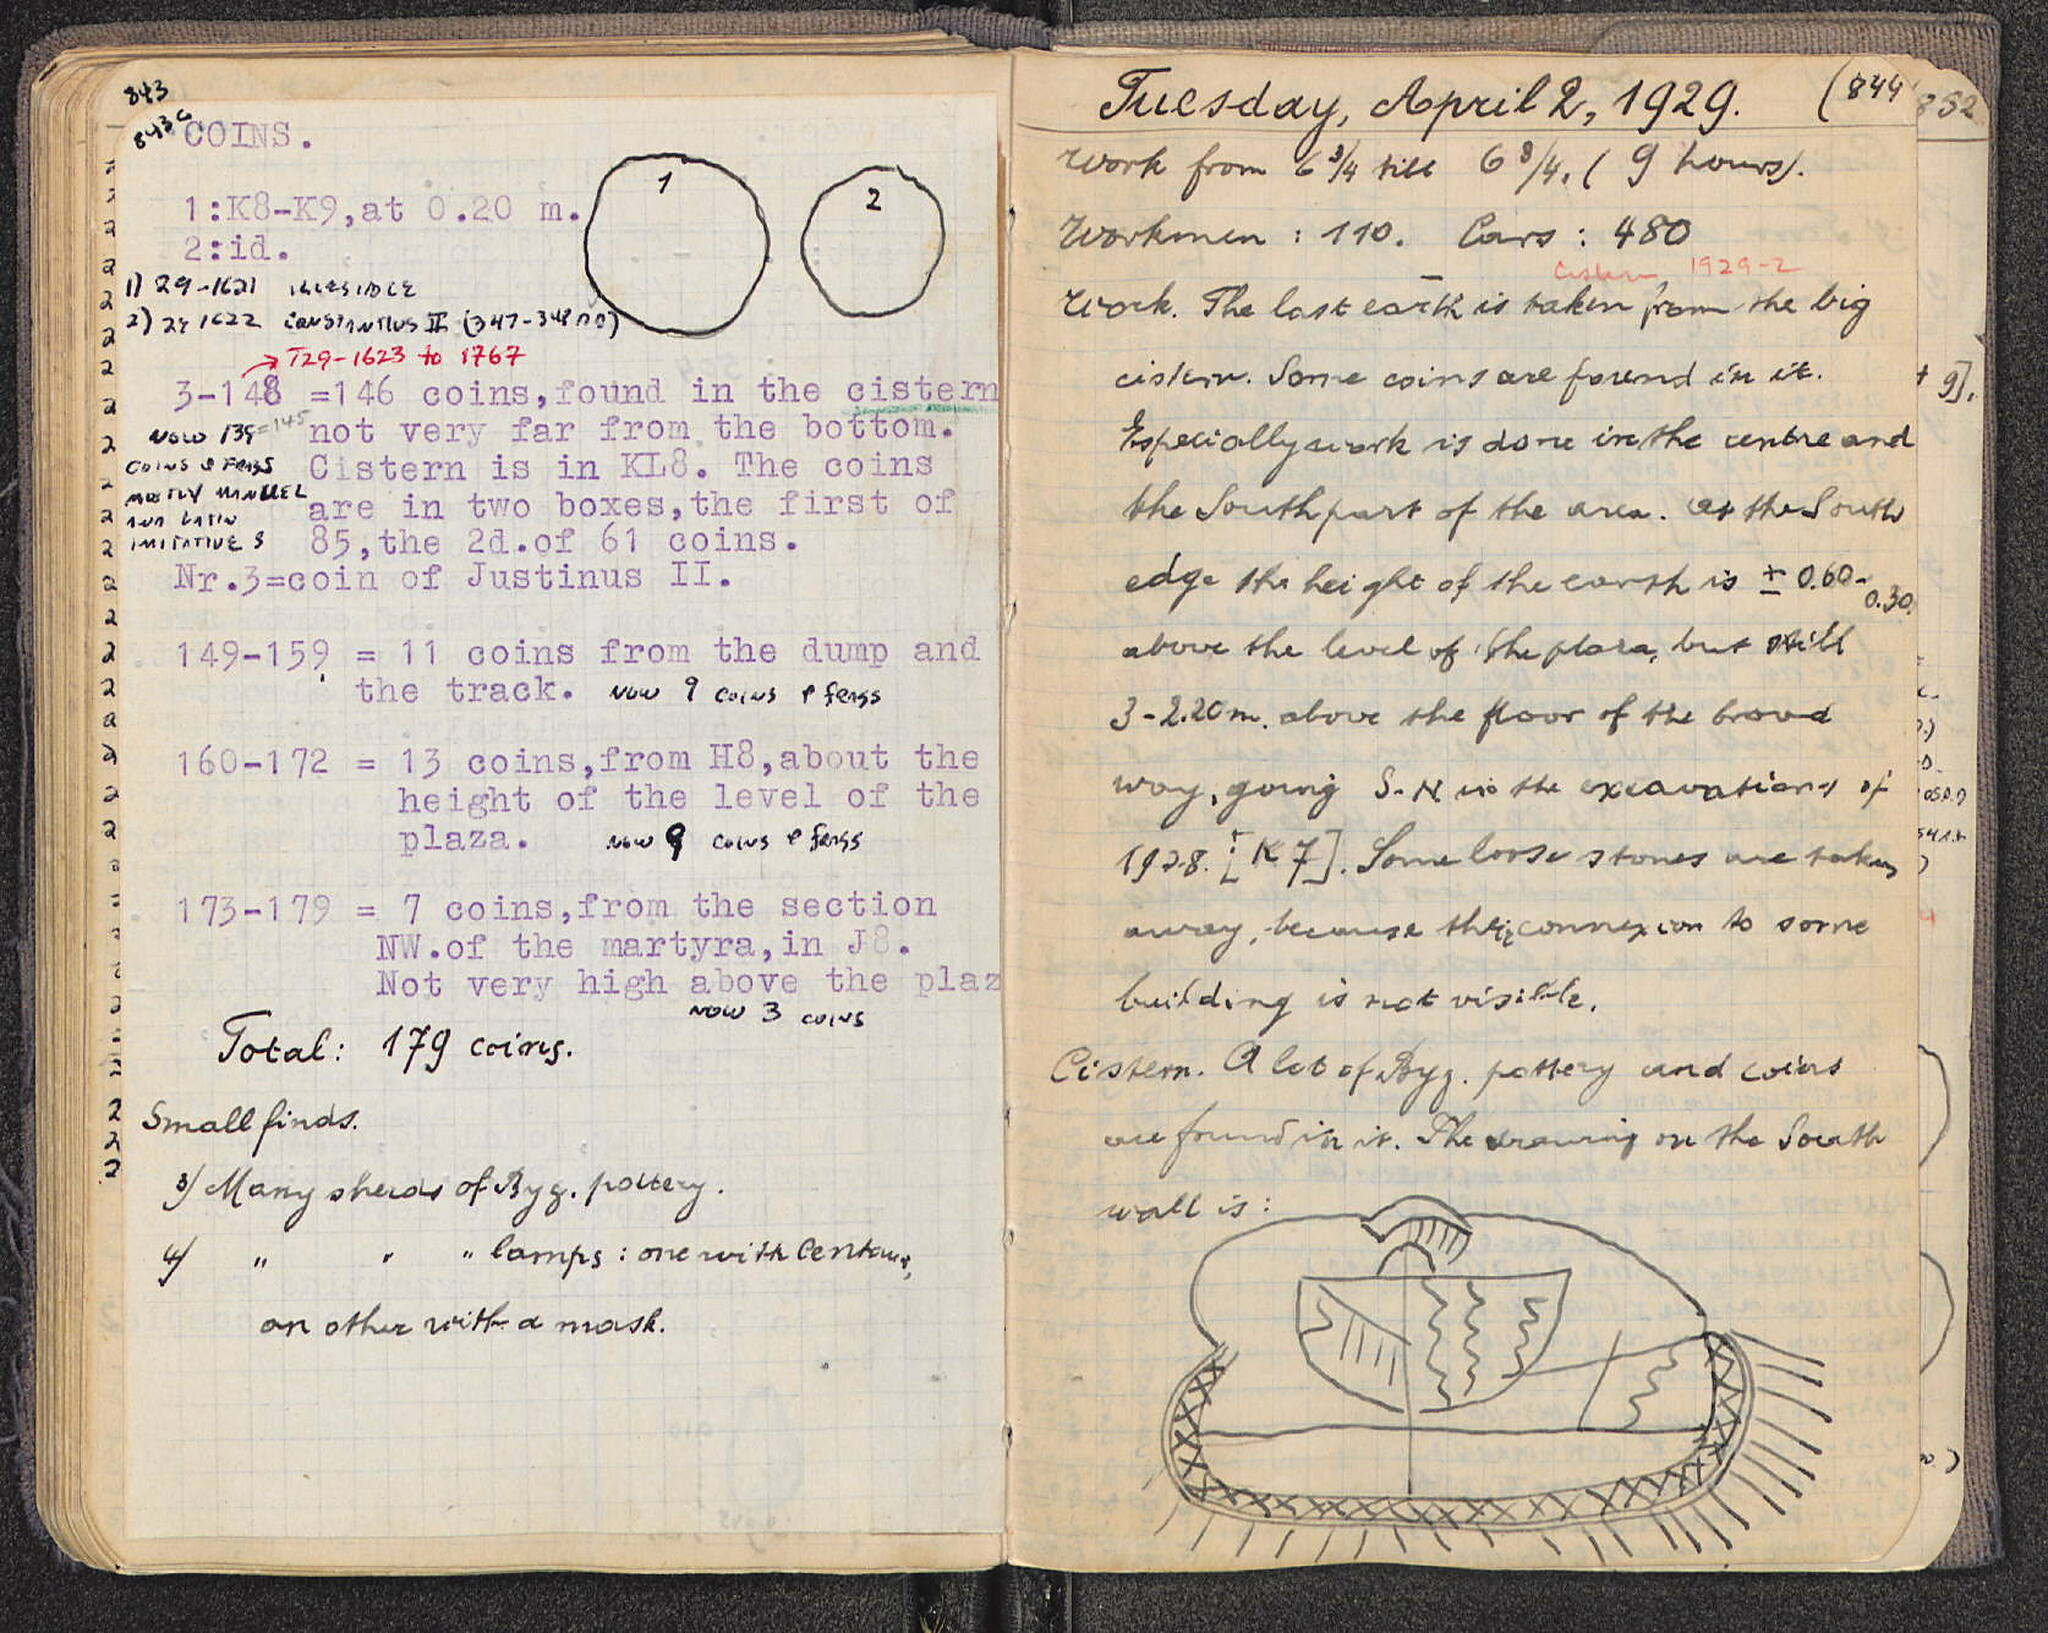 843
843a
COINS.
1
2
1:K8-K9,at 0.20 m.
2:id.
1) 29-1621 ILLEGIBLE
2) 29 1622 CONSTANTIUS II (347-348 AD)
T29-1623 to 1767
3-148 =146 coins,found in the cistern
NOW 139 =145 not very far from the bottom.
COINS & FRAGS Cistern is in KL8. The coins
MOSTLY are in two boxes,the first of
AND LATIN
IMITATIVES 85,the 2d.of 61 coins.
Nr.3=coin of Justinus II.
149-159 = 11 coins from the dump and
the track. NOW 9 COINS & frags
160-172 = 13 coins,from H8,about the
height of the level of the
plaza. NOW 9 COINS & frags
173-179 = 7 coins,from the section
NW.of the martyra,in J8.
Not very high above the plaz
NOW 3 COINS
Total: 179 coins.
Small finds.
3) Many sherds of Byz. pottery.
4) " " " lamps: one with Centaur,
an other with a mask.
Tuesday, April 2, 1929.
(844
852
Work from 6 3/4 till 6 3/4. (9 hours).
Workmen: 110. Cars: 480
Cistern 1929-2
Work. The last earth is taken from the big
cistern. Some coins are found in it.
Especially work is done in the centre and
the South part of the area. At the South
edge the height of the earth is ± 0.60-
0.30
above the level of the plaza, but still
3-2.20 m. above the floor of the broad
way, going S-N in the excavations of
1928. [K7]. Some loose stones are taken
away, because their connexion to some
building is not visible.
Cistern. A lot of Byz. pottery and coins
are found in it. The drawing on the South
wall is: